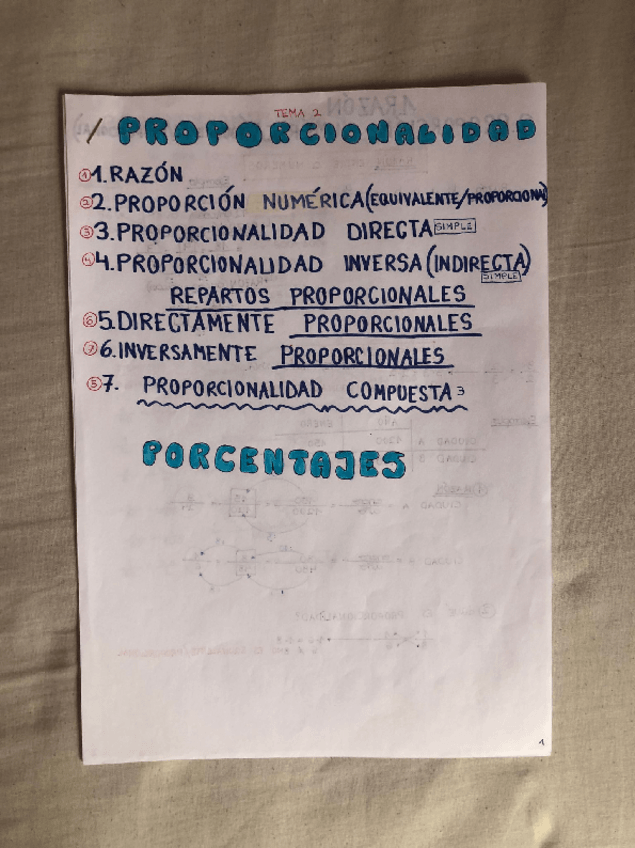 TEMA 2
PROPORCIONALIDAD
① 1. RAZÓN
② 2. PROPORCIÓN NUMÉRICA (EQUIVALENTE/PROPORCIONAL)
③ 3. PROPORCIONALIDAD DIRECTA SIMPLE
④ 4. PROPORCIONALIDAD INVERSA (INDIRECTA)
SIMPLE
REPARTOS PROPORCIONALES
⑥ 5. DIRECTAMENTE PROPORCIONALES
⑦ 6. INVERSAMENTE PROPORCIONALES
⑤ 7. PROPORCIONALIDAD COMPUESTA 3
PORCENTAJES
1